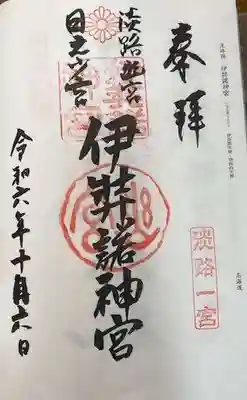 奉拝
淡路一宮
淡路幽宮
日之少宮
伊弉諾神宮
令和六年十月六日